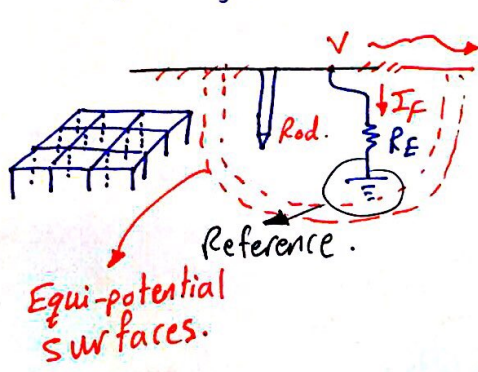 V
Rod.
I_F
R_E
Reference.
Equi-potential
surfaces.